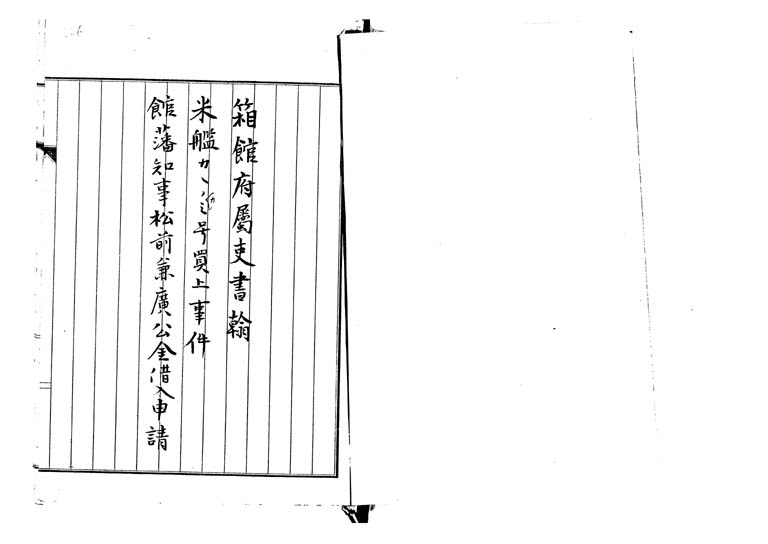 箱館府屬吏書翰
米艦カ号買上事件
館藩知事松前兼廣公金借入申請